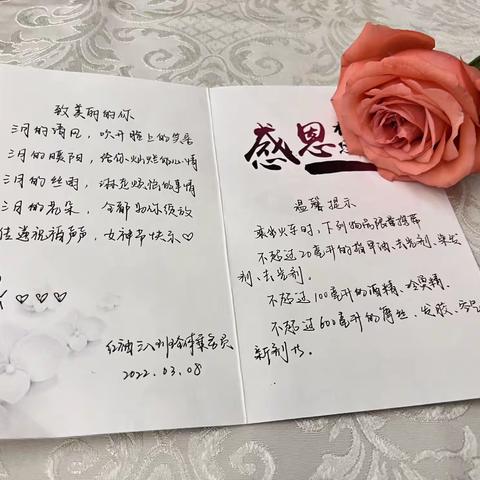 致美丽的你
三月的清风，吹开脸上的笑容
三月的暖阳，给你灿烂的心情
三月的丝雨，淋走烦恼的事情
三月的花朵，全都为你绽放
佳道祝福声声，女神节快乐♡
♡♡♡
2022.03.08
感恩
温馨提示
乘坐火车时，下列物品限量携带
不超过20毫升的指甲油、去光剂、染发
剂、去光剂。
不超过100毫升的酒精、冷烫精。
不超过600毫升的摩丝、发胶、
新剂等。